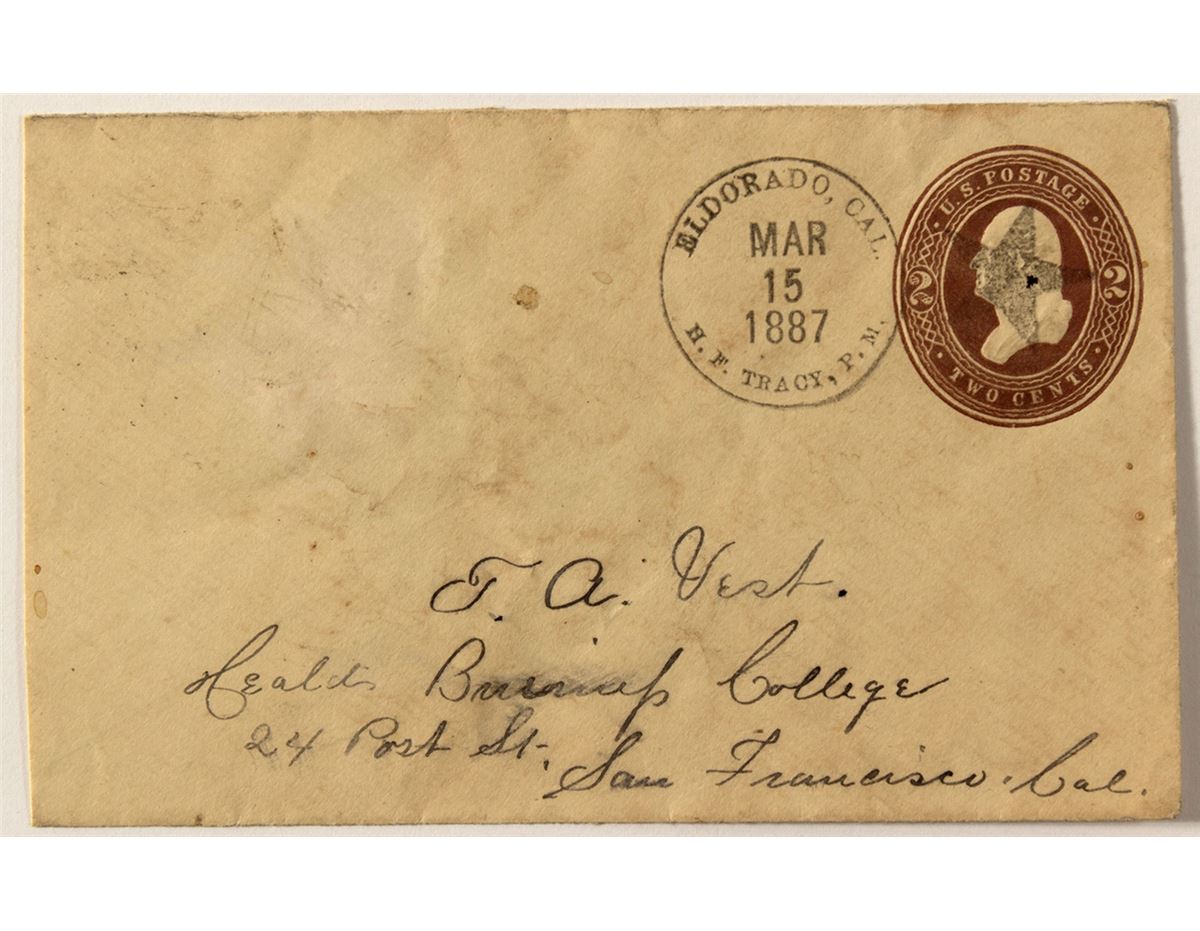 ELDORADO, CAL.
MAR
15
1887
H. F. TRACY, P. M.
U.S. POSTAGE
2 2
TWO CENTS
T. A. Vest.
Heald's Business College
24 Post St.,
San Francisco. Cal.